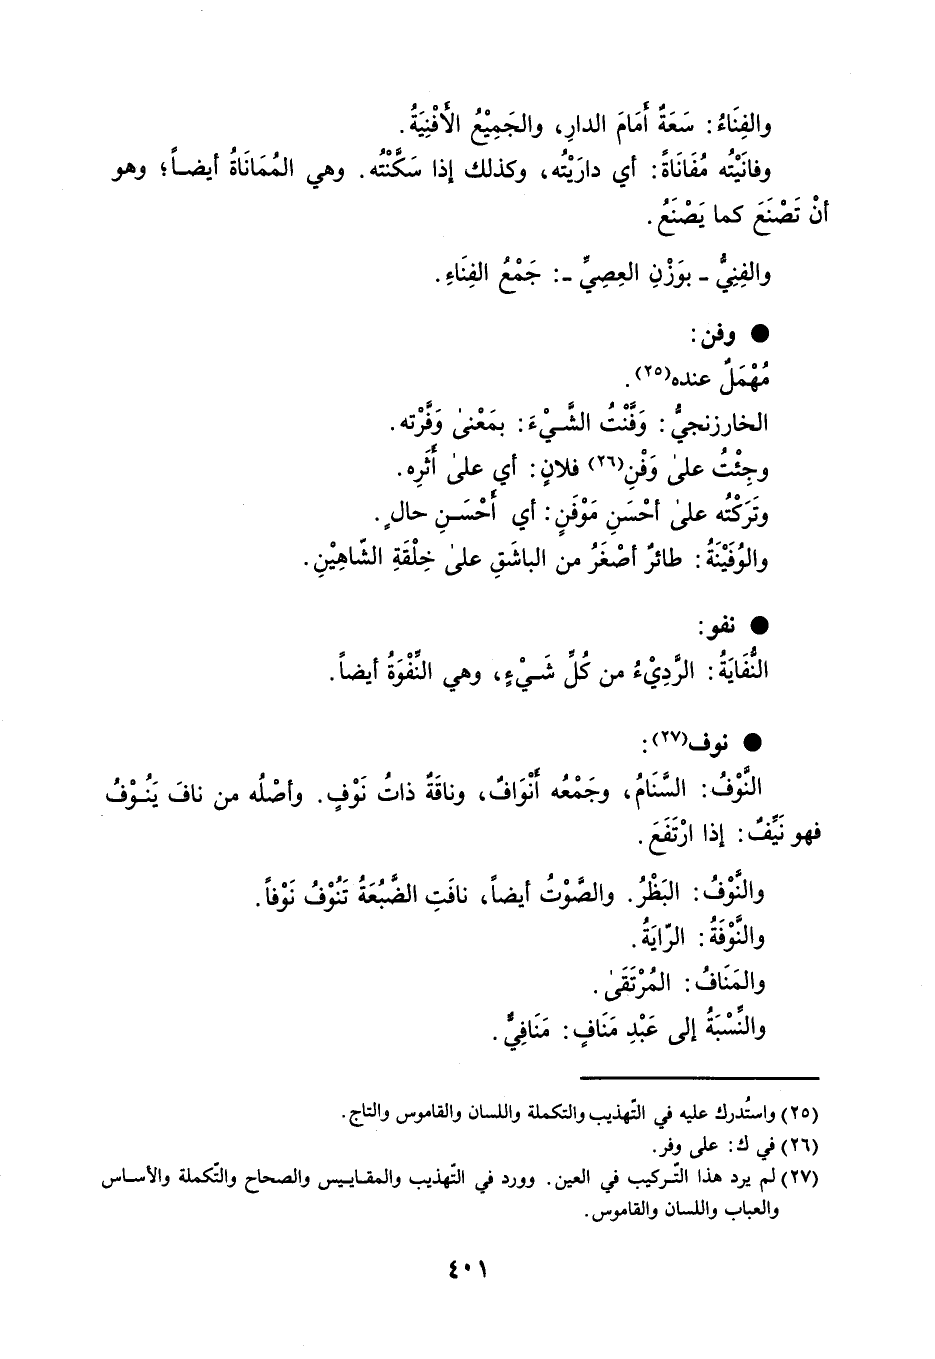 والفِنَاءُ: سَعَةٌ أَمَامَ الدارِ، والجَمِيْعُ الأَفْنِيَةُ.
وفانَيْتُه مُفَانَاةً: أي دارَيْتُه، وكذلك إذا سَكَّنْتُه. وهي المُمَانَاةُ أيضاً؛ وهو
أنْ تَصْنَعَ كما يَصْنَعُ.
والفِنِيُّ - بوَزْنِ العِصِيِّ -: جَمْعُ الفِنَاءِ.
● وفن:
مُهْمَلٌ عنده(٢٥).
الخارزنجيُّ: وَفَّنْتُ الشَّيْءَ: بمَعْنىٰ وَفَّرْته.
وجِئْتُ علىٰ وَفْنِ(٢٦) فلانٍ: أي علىٰ أَثَرِه.
وتَرَكْتُه علىٰ أحْسَنِ مَوْفَنٍ: أي أَحْسَنِ حالٍ.
والوُفَيْنَةُ: طائرٌ أصْغَرُ من الباشَقِ علىٰ خِلْقَةِ الشّاهِيْنِ.
● نفو:
النُّفَايَةُ: الرَّدِيْءُ من كُلِّ شَيْءٍ، وهي النِّفْوَةُ أيضاً.
● نوف(٢٧):
النَّوْفُ: السَّنَامُ، وجَمْعُه أَنْوَافٌ، وناقَةٌ ذاتُ نَوْفٍ. وأصْلُه من نافَ يَنُوْفُ
فهو نَيِّفٌ: إذا ارْتَفَعَ.
والنَّوْفُ: البَظْرُ. والصَّوْتُ أيضاً، نافَتِ الضَّبُعَةُ تَنُوْفُ نَوْفاً.
والنَّوْفَةُ: الرّايَةُ.
والمَنَافُ: المُرْتَقَىٰ.
والنِّسْبَةُ إلى عَبْدِ مَنَافٍ: مَنَافِيٌّ.
(٢٥) واستُدرك عليه في التّهذيب والتكملة واللسان والقاموس والتاج.
(٢٦) في ك: على وفر.
(٢٧) لم يرد هذا التّركيب في العين. وورد في التّهذيب والمقاييس والصحاح والتّكملة والأساس
والعباب واللسان والقاموس.
٤٠١